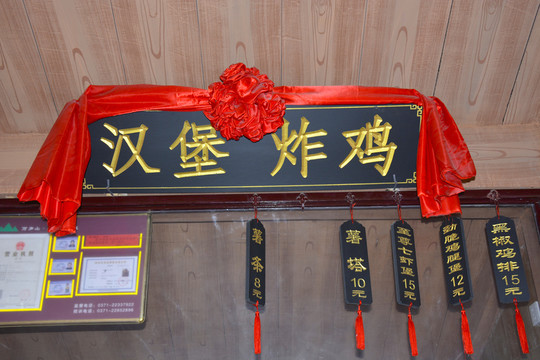 汉堡 炸鸡
薯条8元
薯塔10元
至尊七虾堡15元
劲脆鸡腿堡12元
黑椒鸡排15元
营业执照